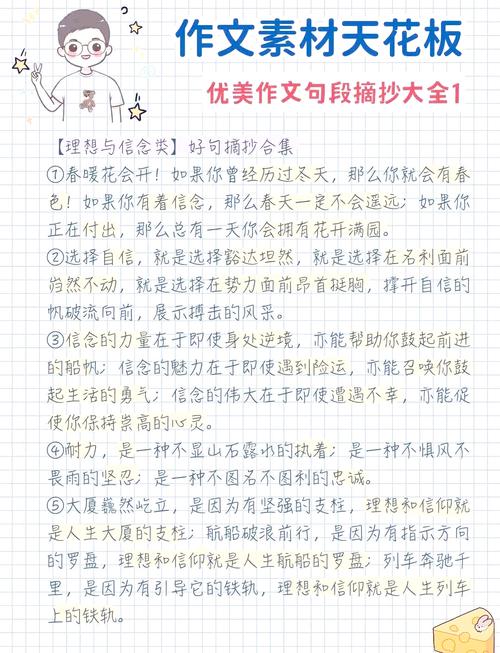 作文素材天花板
优美作文句段摘抄大全1
【理想与信念类】好句摘抄合集
①春暖花会开！如果你曾经历过冬天，那么你就会有春
色！如果你有着信念，那么春天一定不会遥远；如果你
正在付出，那么总有一天你会拥有花开满园。
②选择自信，就是选择豁达坦然，就是选择在名利面前
岿然不动，就是选择在势力面前昂首挺胸，撑开自信的
帆破流向前，展示搏击的风采。
③信念的力量在于即使身处逆境，亦能帮助你鼓起前进
的船帆；信念的魅力在于即使遇到险运，亦能召唤你鼓
起生活的勇气；信念的伟大在于即使遭遇不幸，亦能促
使你保持崇高的心灵。
④耐力，是一种不显山石露水的执着；是一种不惧风不
畏雨的坚忍；是一种不图名不图利的忠诚。
⑤大厦巍然屹立，是因为有坚强的支柱，理想和信仰就
是人生大厦的支柱；航船破浪前行，是因为有指示方向
的罗盘，理想和信仰就是人生航船的罗盘；列车奔驰千
里，是因为有引导它的铁轨，理想和信仰就是人生列车
上的铁轨。